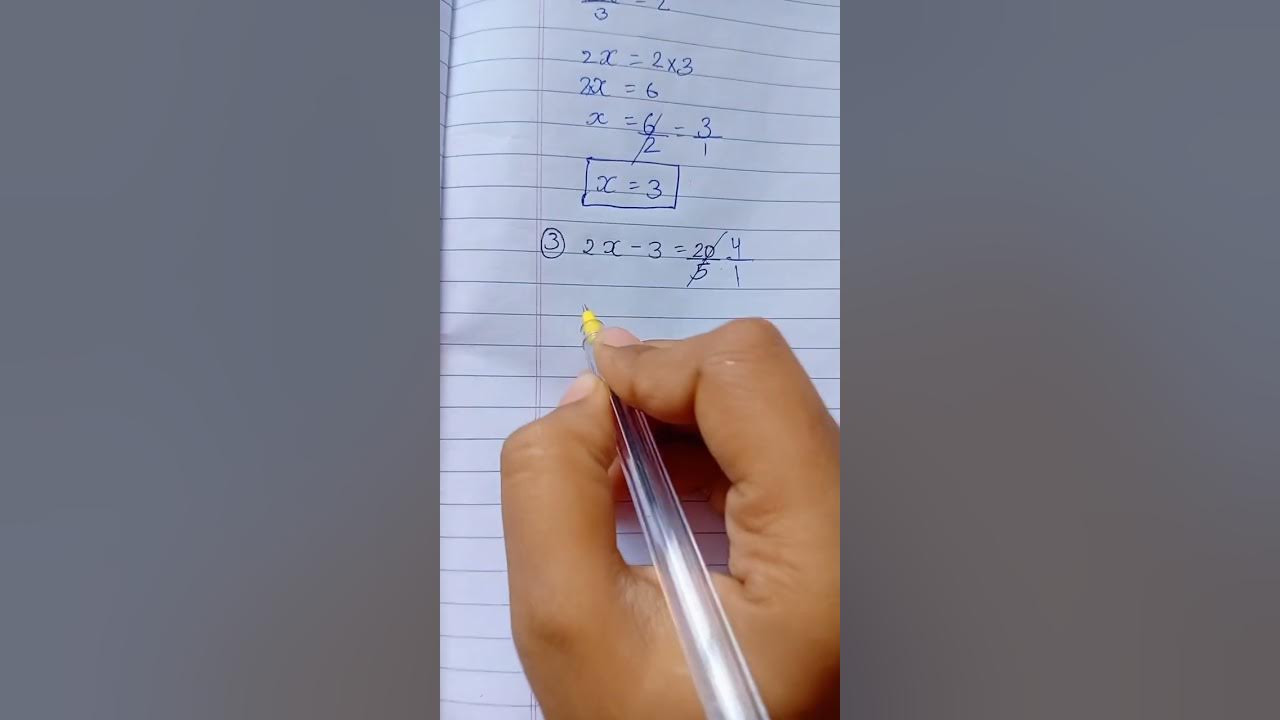 3 = 2
2x = 2×3
2x = 6
x = 6/2 = 3/1
x = 3
③ 2x - 3 = 20/5 4/1